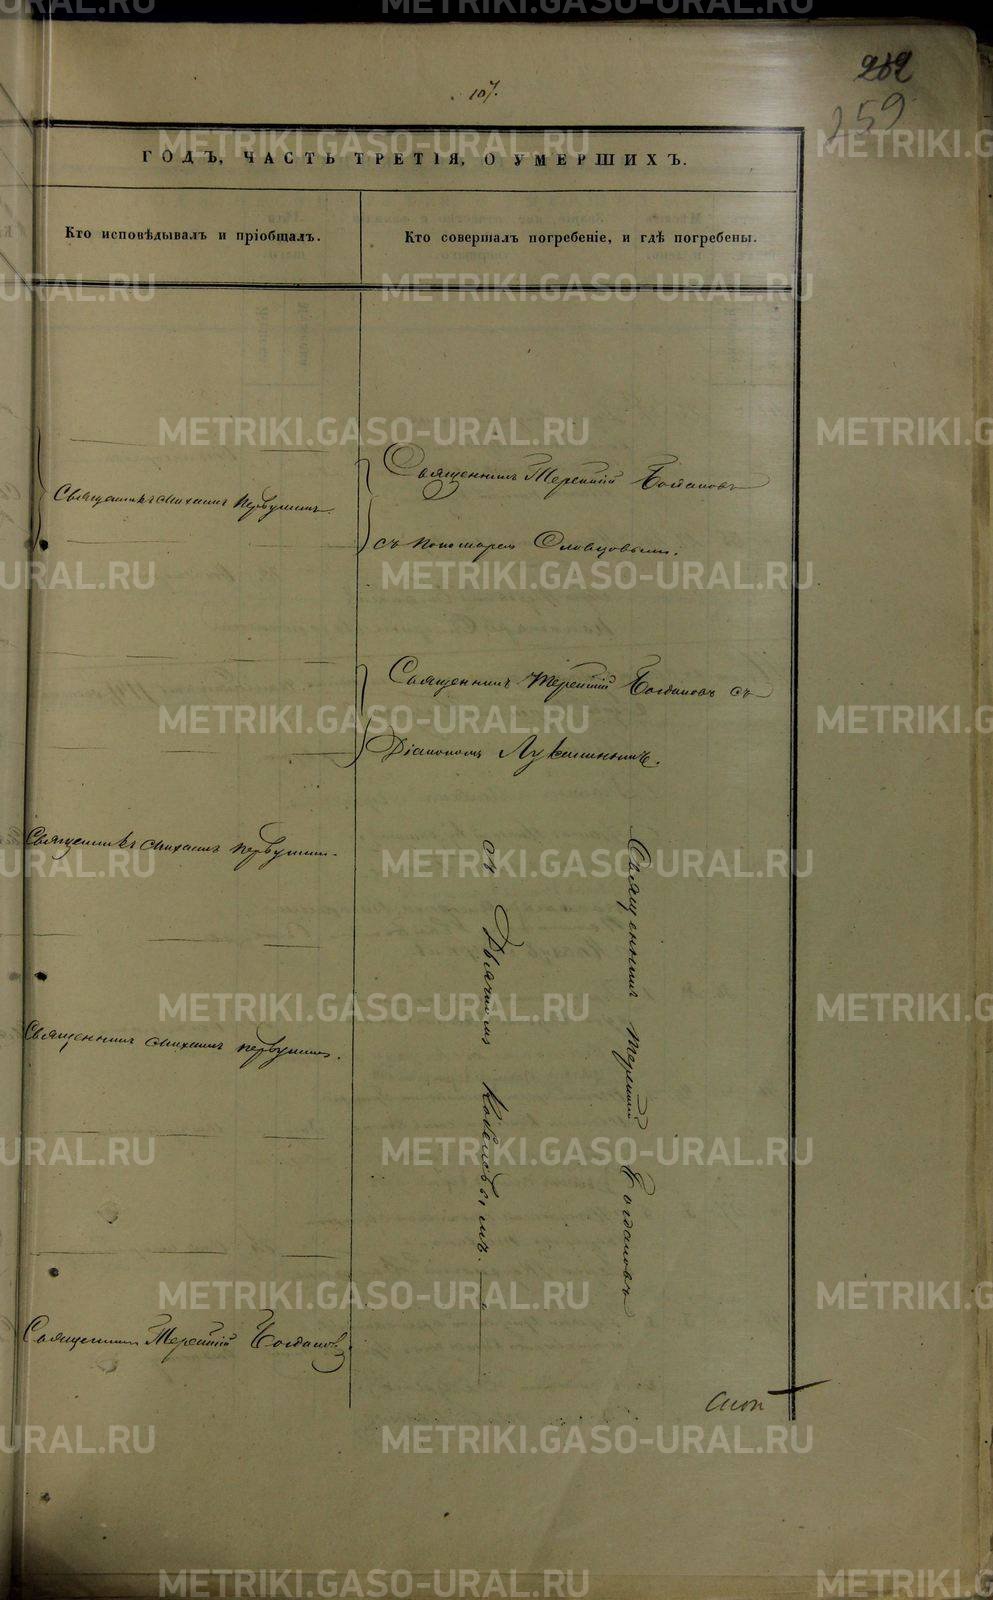 107.
262
259
ГОДЪ, ЧАСТЬ ТРЕТІЯ, О УМЕРШИХЪ.
Кто исповѣдывалъ и пріобщалъ.
Кто совершалъ погребеніе, и гдѣ погребены.
Священникъ Михаилъ Первушинъ.
Священникъ Терентій Богдановъ
съ пономаремъ Словцовымъ.
Священникъ Терентій Богдановъ съ
Діакономъ Лукашинымъ.
Священникъ Михаилъ Первушинъ.
Священникъ Терентій Богдановъ
съ Дьячкомъ
Священникъ Михаилъ Первушинъ.
Священникъ Терентій Богдановъ.
METRIKI.GASO-URAL.RU